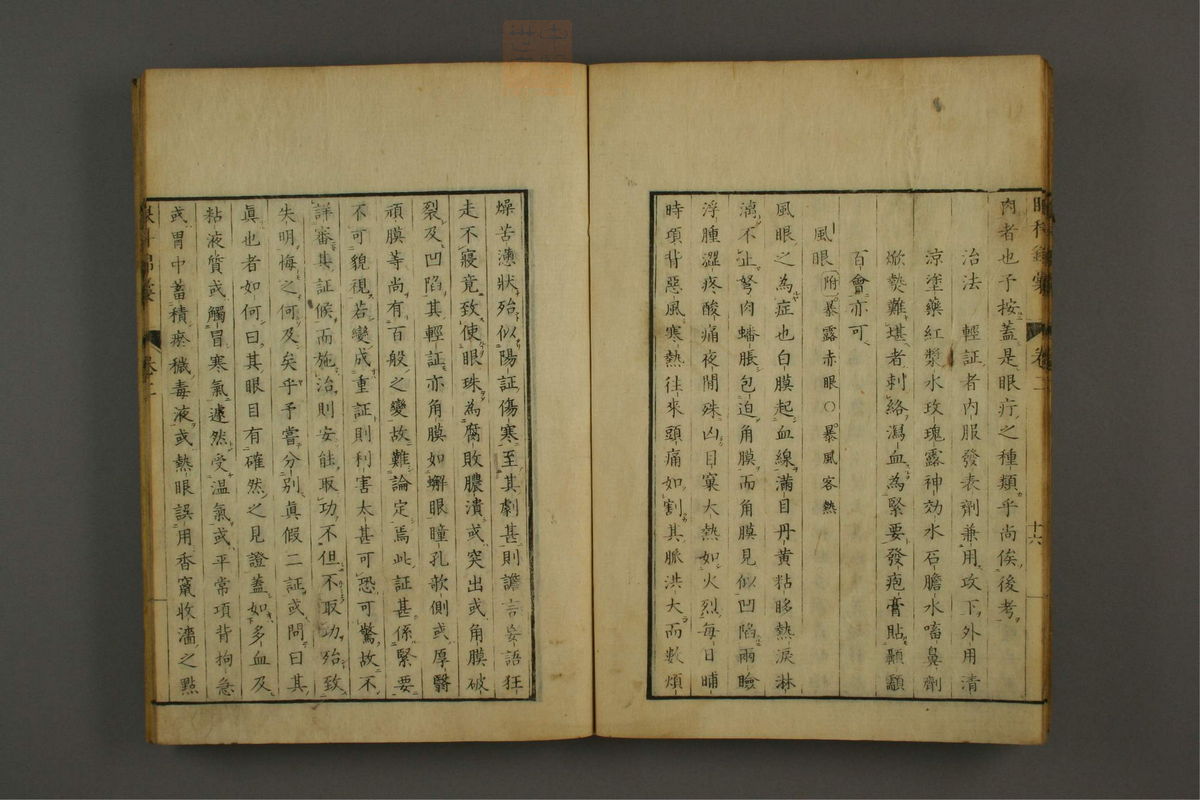 眼科錦囊 卷二 十六
肉者也予按蓋是眼疔之種類乎尚俟後考
治法 輕証者內服發表劑兼用攻下外用清
涼塗藥紅漿水玫瑰露神効水石膽水嗜鼻劑
焮熱難堪者刺絡瀉血為緊要發疱膏貼顳顬
百會亦可
風眼 附暴露赤眼○暴風客熱
風眼之為症也白膜起血線滿目丹黃粘眵熱淚淋
漓不止弩肉蟠脹包迫角膜而角膜見似凹陷兩瞼
浮腫澀疼酸痛夜間殊凶目窠大熱如火烈每日晡
時項背惡風寒熱往來頭痛如割其脈洪大而數煩
燥苦薄狀殆似陽証傷寒至其劇甚則譫言妄語狂
走不寢竟致使眼珠為腐敗膿潰或突出或角膜破
裂及凹陷其輕証亦角膜如蠏眼瞳孔欹側或厚翳
頑膜等尚有百般之變故難論定焉此証甚係緊要
不可貌視若變成重証則利害太甚可恐可驚故不
詳審其証候而施治則安能取功不但不取功殆致
失明悔之何及矣乎予嘗分別眞假二証或問曰其
眞也者如何曰其眼目有確然之見證蓋如多血及
粘液質或觸冒寒氣遽然受温氣或平常項背拘急
或胃中蓄積瘀穢毒液或熱眼誤用香竄收濇之㸃